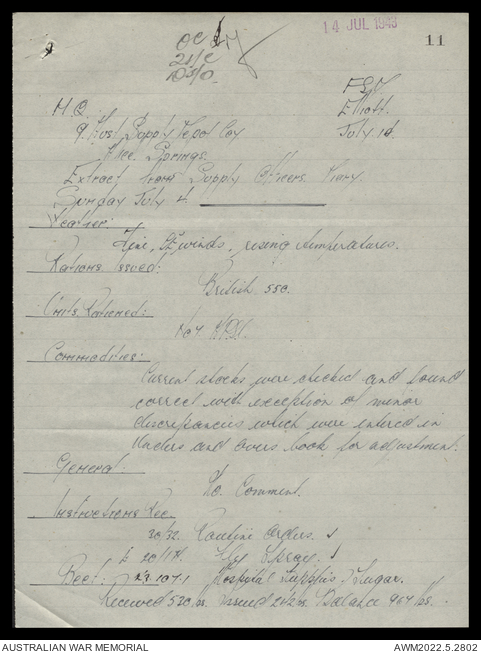 14 JUL 1943
11
OC
21/C
F.S.D.
Elliott.
July 10.
H.Q.
9 Aust Supply Depot Coy
Alice Springs.
Extract from Supply Officers Diary.
Sunday July 4.
Weather:
Fine, SE winds, rising temperatures.
Rations Issued:
British 550.
Units Rationed:
Commodities:
Current stocks were checked and found
correct with exception of minor
discrepancies which were entered in
Unders and Overs book for adjustment.
General.
No. Comment.
Instructions Rec.
30/32. Routine Orders. 1
20/174. Fly Spray. 1
Beef: Hospital Supplies, Sugar.
Received 520 lbs. Issued 212 lbs. Balance 967 lbs.
AUSTRALIAN WAR MEMORIAL
AWM2022.5.2802